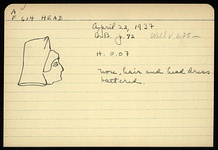 A
P 614 HEAD
April 22, 1937
G.B. J. 92 Well V. 4.75 –
H. 0.07
Nose, hair and head dress
battered.